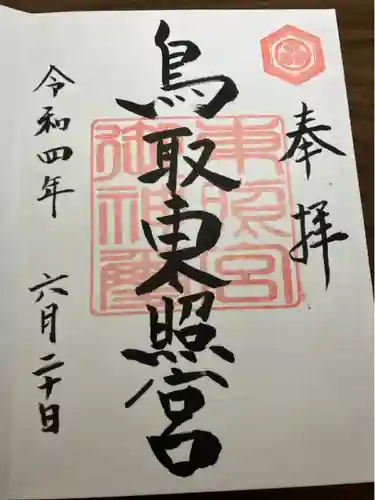 奉拝
鳥取東照宮
東照宮
御神璽
令和四年 六月二十日